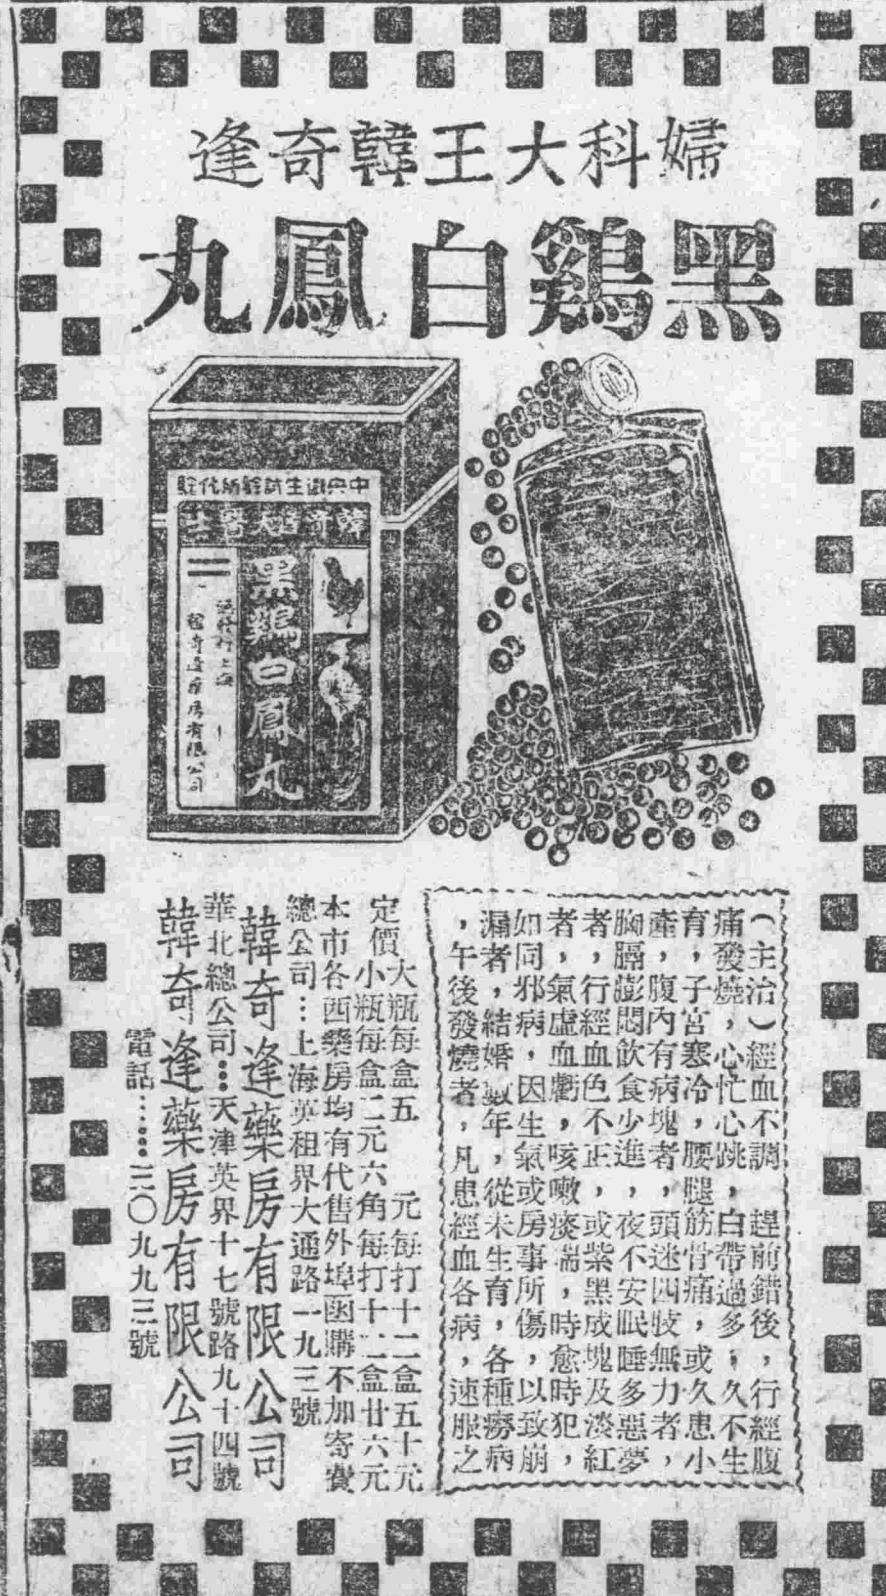 婦科大王韓奇逢
黑鷄白鳳丸
中央衛生試驗所化驗
黑鷄白鳳丸
韓奇逢藥房有限公司
（主治）經血不調　趕前錯後，行經腹
痛發燒，心忙心跳，白帶過多，久不生
育，子宮寒冷，腰腿筋骨痛，或久患小
產，腹內有病塊者，頭迷四肢無力者，
胸膈澎悶飲食少進，夜不安眠睡多惡夢
者，行經血色不正，或紫黑成塊及淡紅
者，氣虛血虧，咳嗽痰喘，時愈時犯，
如同邪病，因生氣或房事所傷，以致崩
漏者，結婚數年，從未生育，各種癆病
，午後發燒者，凡患經血各病，速服之
定價
大瓶每盒五　元每打十二盒五十元
小瓶每盒二元六角每打十二盒廿六元
本市各西藥房均有代售外埠函購不加寄費
總公司…上海英租界大通路一九三號
韓奇逢藥房有限公司
華北總公司…天津英界十七號路九十四號
韓奇逢藥房有限公司
電話……三〇九九三號